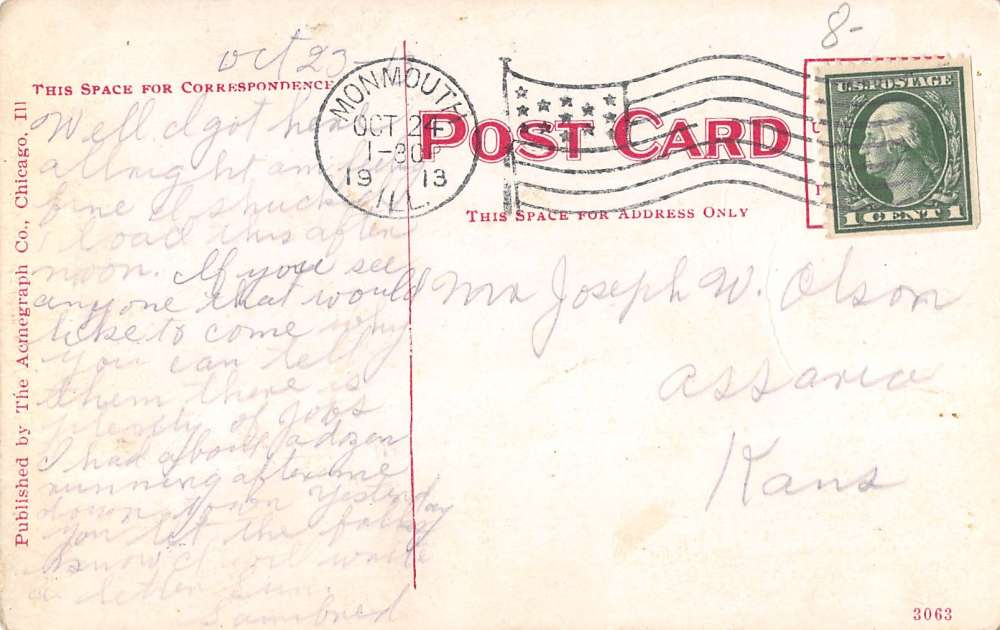 8-
Oct 23-
THIS SPACE FOR CORRESPONDENCE
Well I got here
allright am feeling
fine I shucked
load this after
noon. If you see
anyone that would
like to come why
you can tell
them there is
plenty of jobs
I had about a dozen
running after me
down town yesterday
you let the folks
know I will write
a letter Sun.
MONMOUTH
OCT 24
1-30 P
19 13
ILL.
POST CARD
THIS SPACE FOR ADDRESS ONLY
U.S. POSTAGE
1 CENT 1
Mr Joseph W. Olson
Assaria
Kans
Published by The Acmegraph Co., Chicago, Ill
3063